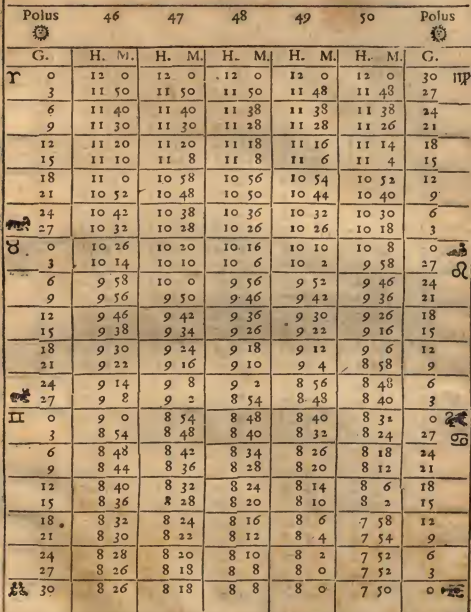 Polus 46 47 48 49 50 Polus
G. H. M. H. M. H. M. H. M. H. M. G.
♈ 0 12 0 12 0 12 0 12 0 12 0 30 ♍
3 11 50 11 50 11 50 11 48 11 48 27
6 11 40 11 40 11 38 11 38 11 38 24
9 11 30 11 30 11 28 11 28 11 26 21
12 11 20 11 20 11 18 11 16 11 14 18
15 11 10 11 8 11 8 11 6 11 4 15
18 11 0 10 58 10 56 10 54 10 52 12
21 10 52 10 48 10 50 10 44 10 40 9
24 10 42 10 38 10 36 10 32 10 30 6
27 10 32 10 28 10 26 10 26 10 18 3
♉ 0 10 26 10 20 10 16 10 10 10 8 0
3 10 14 10 10 10 6 10 2 9 58 27 ♌
6 9 58 10 0 9 56 9 52 9 46 24
9 9 56 9 50 9 46 9 42 9 36 21
12 9 46 9 42 9 36 9 30 9 26 18
15 9 38 9 34 9 26 9 22 9 16 15
18 9 30 9 24 9 18 9 12 9 6 12
21 9 22 9 16 9 10 9 4 8 58 9
24 9 14 9 8 9 2 8 56 8 48 6
27 9 8 9 2 8 54 8 48 8 40 3
♊ 0 9 0 8 54 8 48 8 40 8 32 0
3 8 54 8 48 8 40 8 32 8 24 27 ♋
6 8 48 8 42 8 34 8 26 8 18 24
9 8 44 8 36 8 28 8 20 8 12 21
12 8 40 8 32 8 24 8 14 8 6 18
15 8 36 8 28 8 20 8 10 8 2 15
18 8 32 8 24 8 16 8 6 7 58 12
21 8 30 8 22 8 12 8 4 7 54 9
24 8 28 8 20 8 10 8 2 7 52 6
27 8 26 8 18 8 8 8 0 7 52 3
30 8 26 8 18 8 8 8 0 7 50 0